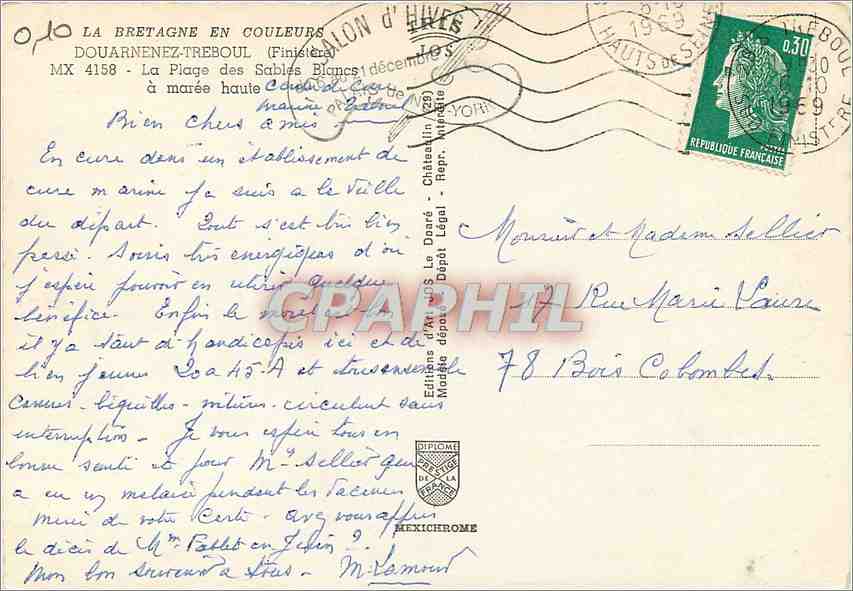 0,10
LA BRETAGNE EN COULEURS
DOUARNENEZ-TREBOUL (Finistère)
MX 4158 - La Plage des Sables Blancs
à marée haute
Centre de Cure
marine Tréboul
Bien chers amis
En cure dans un établissement de
cure marine je suis a la veille
du départ. Tout s'est très bien
passé. Soins très energiques d'où
j'espère pouvoir en retirer quelque
bénéfice. Enfin le moral est bon
il y a tant d'handicapés ici et de
bien jeunes 20 a 45 A et tous ensemble
Cannes - béquilles - voitures - circulent sans
interruption - Je vous espère tous en
bonne santé et pour Mr Sellier qui
a eu un malaise pendant les vacances
merci de votre carte - avez vous appris
le décès de Mm Pablet en Juin ?
Mon bon souvenir a tous - M. Lamour
Editions d'Art JOS Le Doaré - Châteaulin (29)
Modèle déposé - Dépôt Légal - Repr. Interdite
DIPLOME
PRESTIGE
DE LA
FRANCE
MEXICHROME
SALON d'HIVER
décembre
PALAIS de NEW-YORK
1969
HAUTS DE SEINE
TREBOUL
1969
FINISTERE
0,30
REPUBLIQUE FRANÇAISE
Monsieur et Madame Sellier
17 Rue Marie Laure
78 Bois Colombes
CPAPHIL